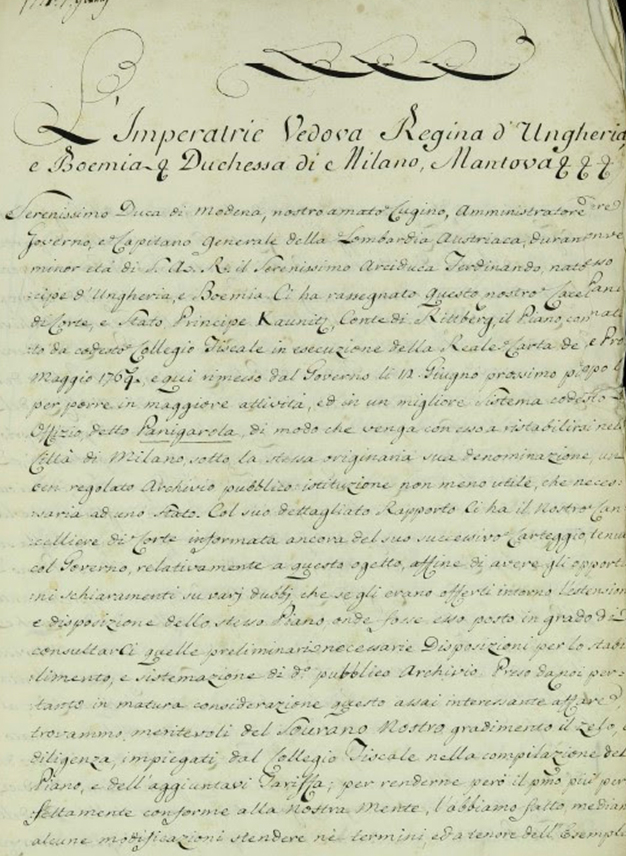 L'Imperatrice Vedova Regina d'Ungheria,
e Boemia, Duchessa di Milano, Mantova
Serenissimo Duca di Modena, nostro amato Cugino, Amministratore
Governo, e Capitano Generale della Lombardia Austriaca, duran
minor età di S. A. R. il Serenissimo Arciduca Ferdinando, nato
cipe d'Ungheria, e Boemia. Ci ha rassegnato questo nostro Cancel
di Corte, e Stato Principe Kaunitz, Conte di Rittberg, il Piano, com
to da codesto Collegio Fiscale in esecuzione della Reale Carta de
Maggio 1767, e qui rimesso dal Governo li 12 Giugno prossimo
per porre in maggiore attività, ed in un migliore Sistema codesto
Offizio, detto Panigarola, di modo che venga con essa a ristabilirsi nel
Città di Milano, sotto la stessa originaria sua denominazione, un
ben regolato Archivio pubblico: istituzione non meno utile, che neces:
:saria ad uno Stato. Col suo dettagliato Rapporto Ci ha il nostro Can
:celliere di Corte informata ancora del suo successivo Carteggio, tenu
col Governo, relativamente a questo ogetto, affine di avere gli opportu
:ni schiaramenti su varj dubbj, che se gli erano offerti intorno l'estension
e disposizione dello stesso Piano onde fosse esso posto in grado di
consultarCi quelle preliminari necessarie Disposizioni per lo stabi
:limento, e sistemazione di do. pubblico Archivio. Preso da noi per:
:tanto in matura considerazione questo assai interessante affare
trovammo meritevoli del Sovrano Nostro gradimento il zelo, e
diligenza, impiegati dal Collegio Fiscale nella compilazione del
Piano, e dell'aggiuntavi Tariffa; per renderne però il pmo. più per
:fettamente conforme alla Nostra Mente, l'abbiamo fatto median
alcune modificazioni stendere nè termini, ed a tenore dell'Esempl